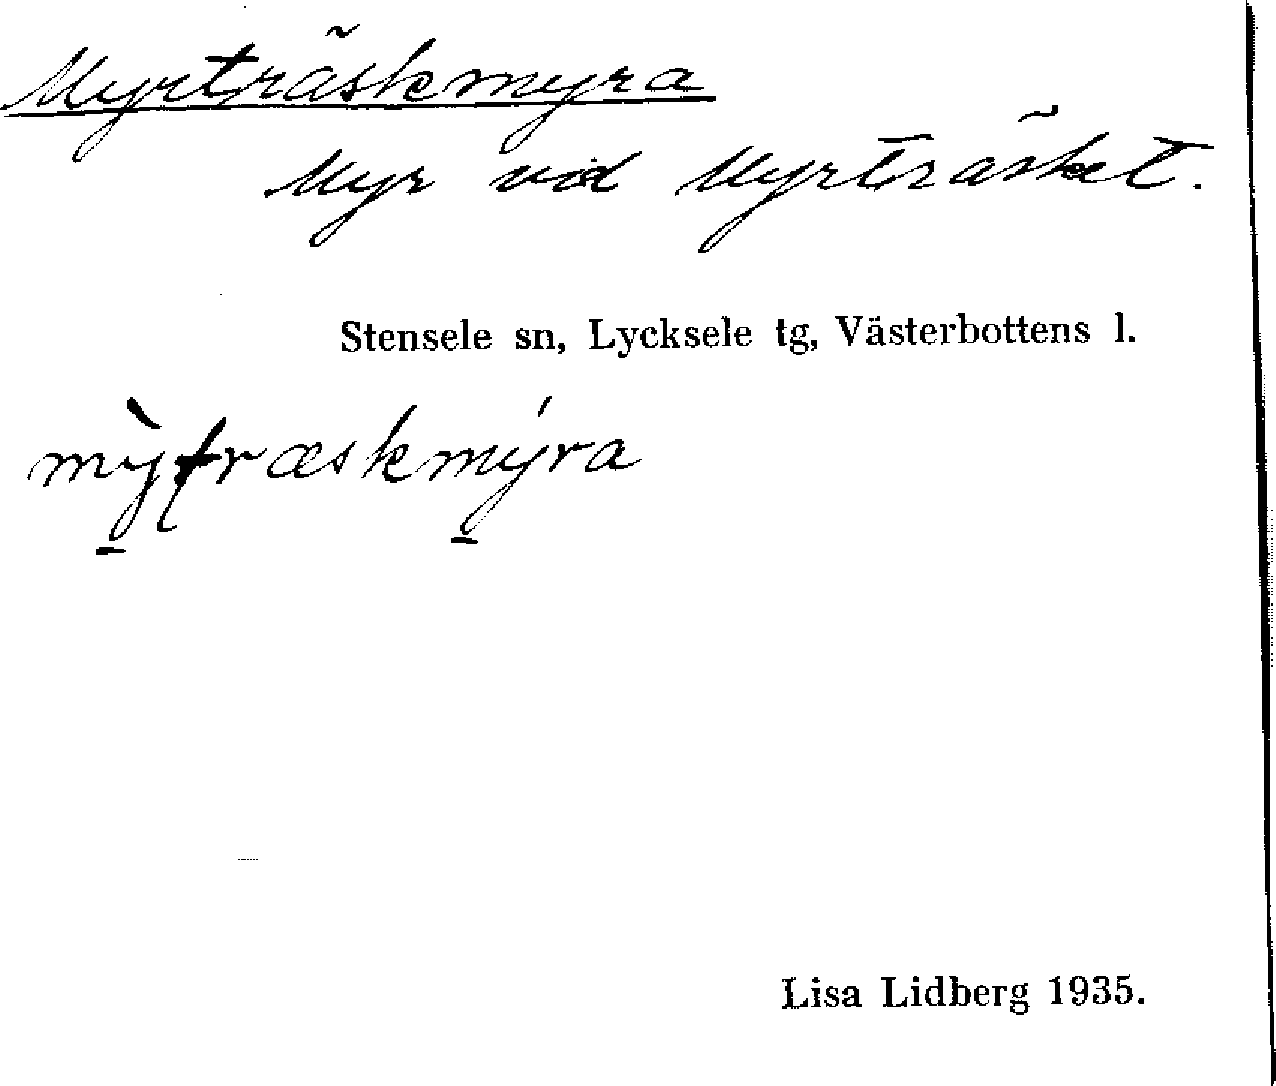 Myrträskmyra
Myr vid Myrträsket.
Stensele sn, Lycksele tg, Västerbottens l.
mỳ̱ʈræskmý̱ra
Lisa Lidberg 1935.